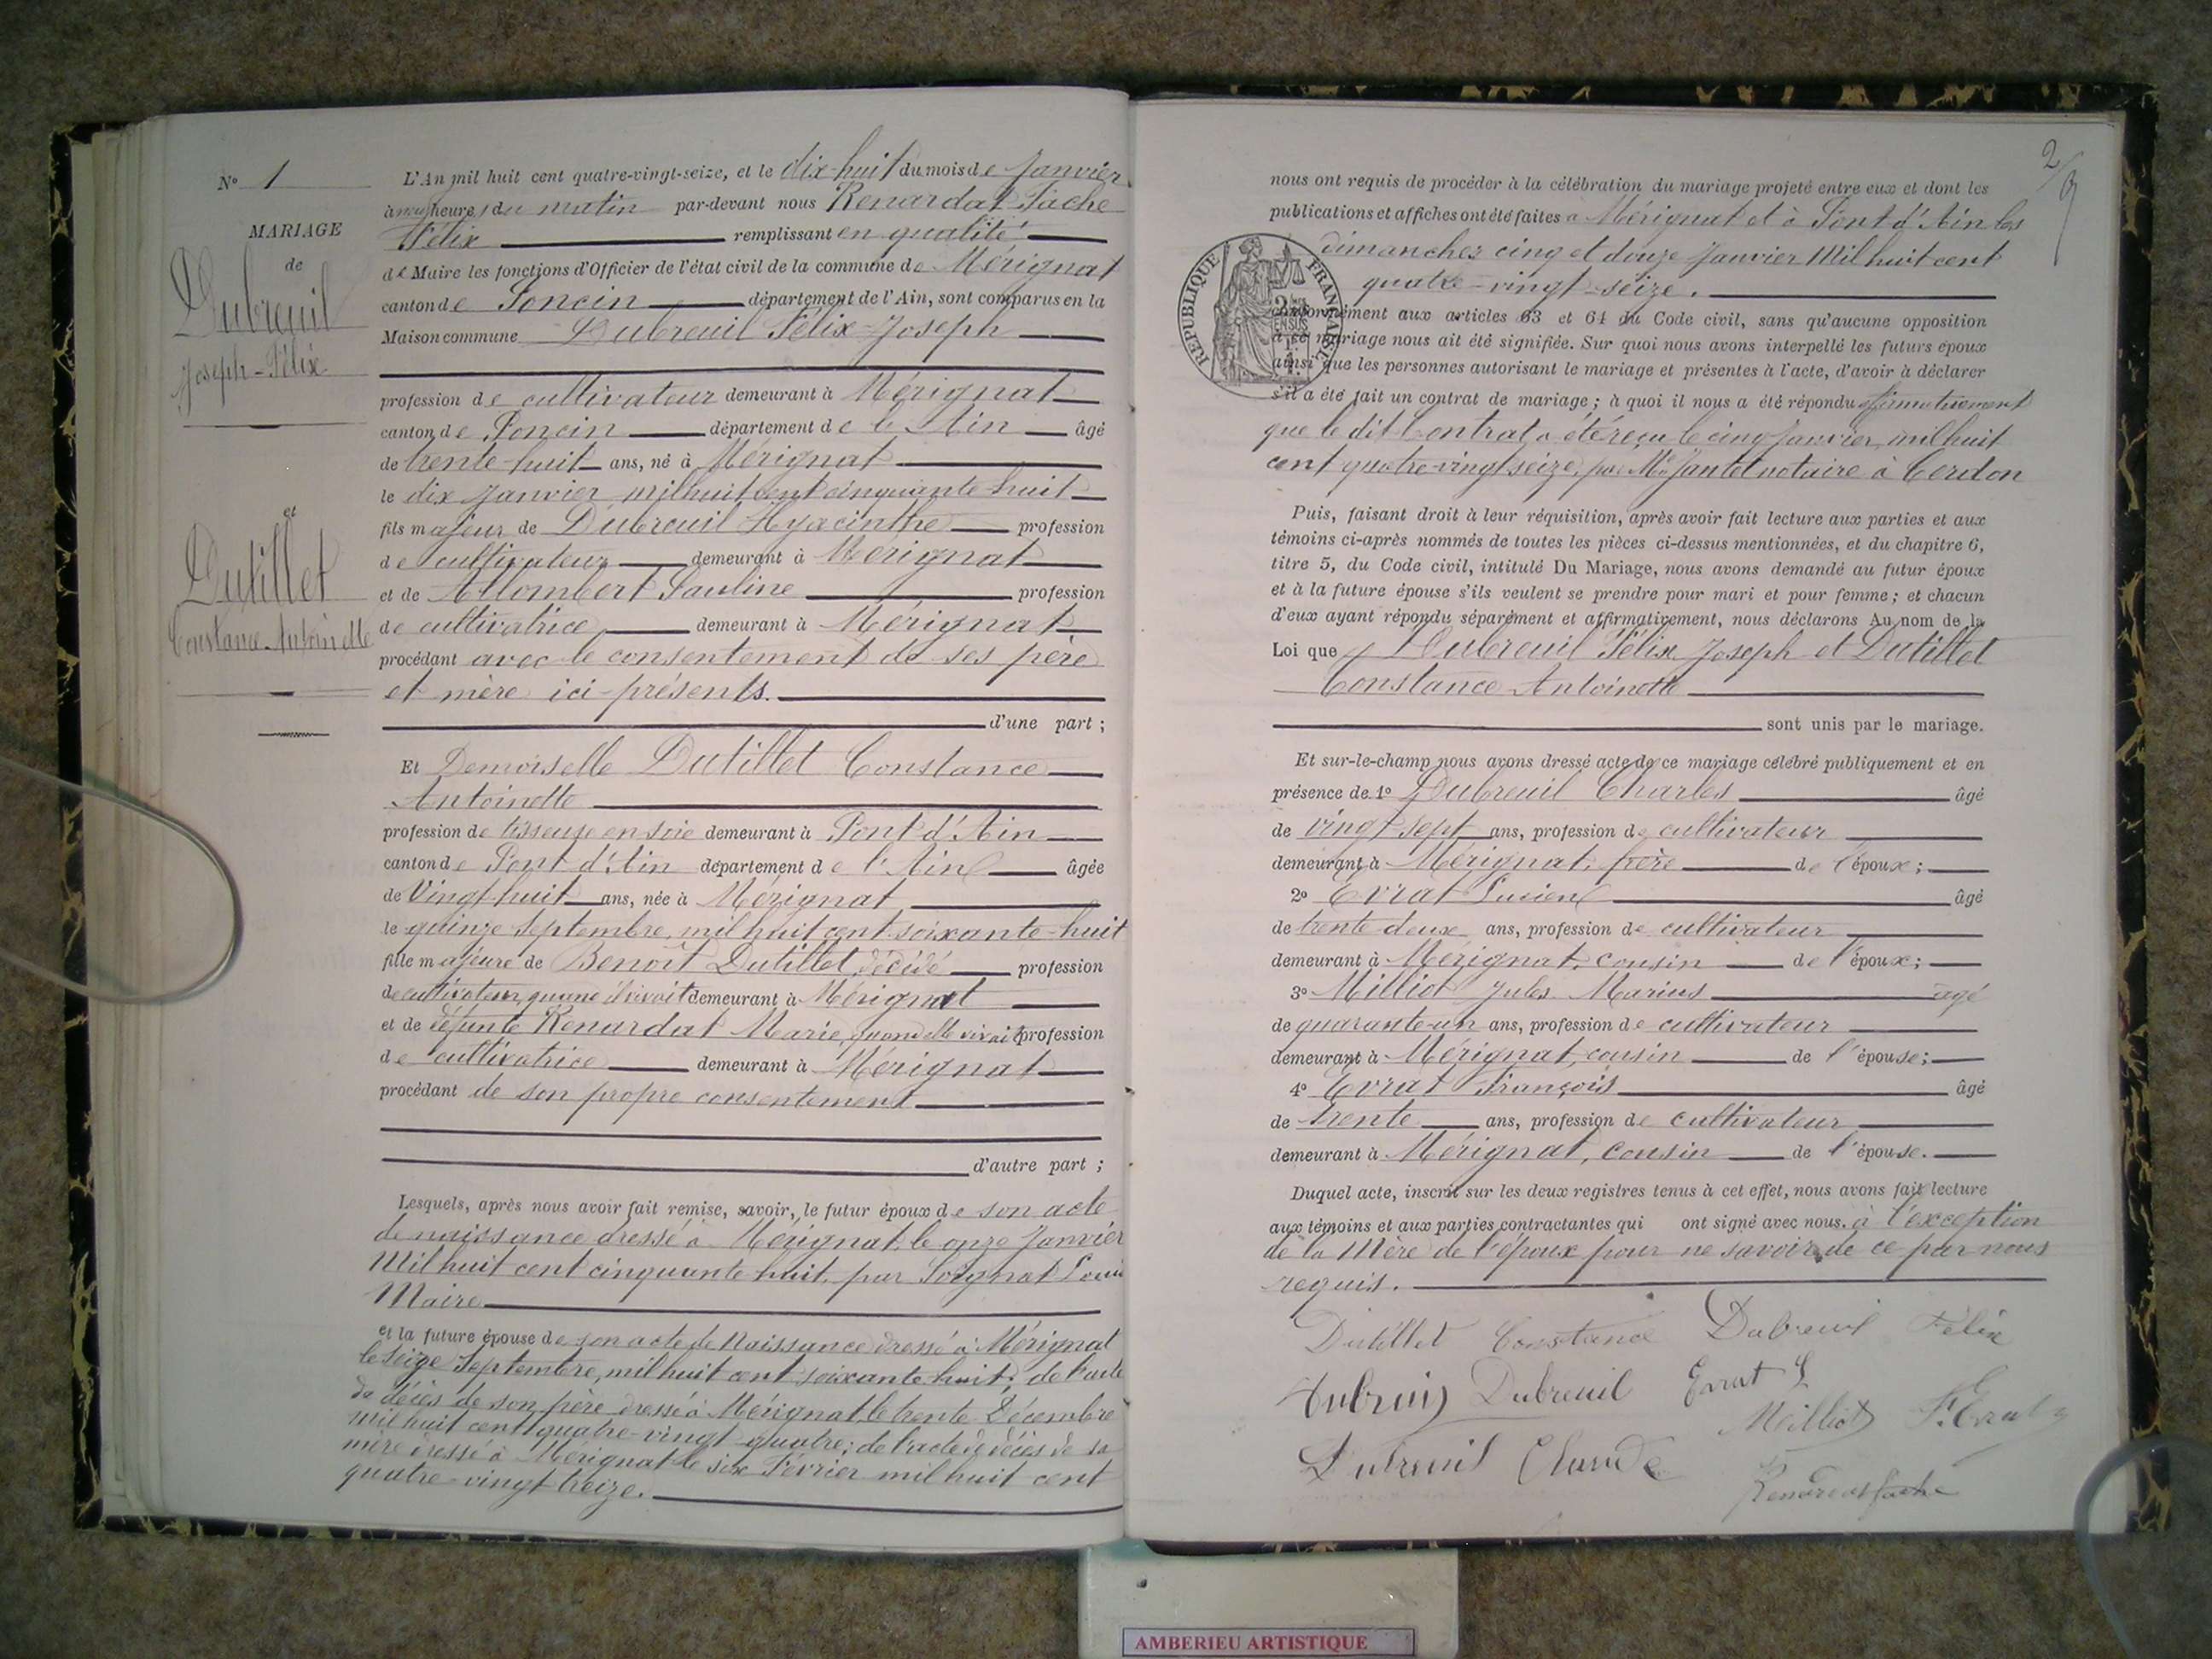 N° 1
MARIAGE
de
Dubreuil
Joseph-Félix
et
Dutillet
Constance Antoinette
L'An mil huit cent quatre-vingt-seize, et le dix-huit du mois de Janvier
à heures du matin par-devant nous Renardat Fache
Félix remplissant en qualité
de Maire les fonctions d'Officier de l'état civil de la commune de Mérignat
canton de Poncin département de l'Ain, sont comparus en la
Maison commune Dubreuil Félix-Joseph
profession de cultivateur demeurant à Mérignat
canton de Poncin département de l'Ain âgé
de trente-huit ans, né à Mérignat
le dix Janvier mil huit cent cinquante-huit
fils majeur de Dubreuil Hyacinthe profession
de cultivateur demeurant à Mérignat
et de Allombert Pauline profession
de cultivatrice demeurant à Mérignat
procédant avec le consentement de ses père
et mère ici-présents.
d'une part ;
Et Demoiselle Dutillet Constance
Antoinette
profession de tisseuse en soie demeurant à Pont d'Ain
canton de Pont d'Ain département de l'Ain âgée
de Vingt-huit ans, née à Mérignat
le quinze Septembre, mil huit cent soixante-huit
fille majeure de Benoît Dutillet, décédé profession
de cultivateur, quand il vivait demeurant à Mérignat
et de défunte Renardat Marie, quand elle vivait profession
de cultivatrice demeurant à Mérignat
procédant de son propre consentement
d'autre part ;
Lesquels, après nous avoir fait remise, savoir, le futur époux de son acte
de naissance dressé à Mérignat, le onze Janvier
Mil huit cent cinquante huit, par Soignat Louis
Maire
et la future épouse de son acte de Naissance dressé à Mérignat
le seize Septembre, mil huit cent soixante-huit ; de l'acte
de décès de son père dressé à Mérignat, le trente Décembre
mil huit cent quatre-vingt-quatre ; de l'acte de décès de sa
mère dressé à Mérignat le six Février mil huit cent
quatre-vingt treize.
2
9
nous ont requis de procéder à la célébration du mariage projeté entre eux et dont les
publications et affiches ont été faites à Mérignat et à Pont d'Ain les
dimanches cinq et douze Janvier Mil huit cent
quatre-vingt-seize.
RÉPUBLIQUE FRANÇAISE
conformément aux articles 63 et 64 du Code civil, sans qu'aucune opposition
à ce mariage nous ait été signifiée. Sur quoi nous avons interpellé les futurs époux
ainsi que les personnes autorisant le mariage et présentes à l'acte, d'avoir à déclarer
s'il a été fait un contrat de mariage ; à quoi il nous a été répondu affirmativement
que le dit Contrat a été reçu le cinq Janvier, mil huit
cent quatre-vingt seize, par Me Jantet notaire à Cerdon
Puis, faisant droit à leur réquisition, après avoir fait lecture aux parties et aux
témoins ci-après nommés de toutes les pièces ci-dessus mentionnées, et du chapitre 6,
titre 5, du Code civil, intitulé Du Mariage, nous avons demandé au futur époux
et à la future épouse s'ils veulent se prendre pour mari et pour femme ; et chacun
d'eux ayant répondu séparément et affirmativement, nous déclarons Au nom de la
Loi que Dubreuil Félix Joseph et Dutillet
Constance Antoinette
sont unis par le mariage.
Et sur-le-champ nous avons dressé acte de ce mariage célébré publiquement et en
présence de 1° Dubreuil Charles âgé
de vingt-sept ans, profession de cultivateur
demeurant à Mérignat, frère de l'époux ;
2° Evrat Lucien âgé
de trente deux ans, profession de cultivateur
demeurant à Mérignat, cousin de l'époux ;
3° Milliot Jules Marius âgé
de quarante-un ans, profession de cultivateur
demeurant à Mérignat, cousin de l'épouse ;
4° Evrat François âgé
de trente ans, profession de cultivateur
demeurant à Mérignat, cousin de l'épouse.
Duquel acte, inscrit sur les deux registres tenus à cet effet, nous avons fait lecture
aux témoins et aux parties contractantes qui ont signé avec nous. à l'exception
de la Mère de l'époux pour ne savoir, de ce par nous
requis.
Dutillet Constance Dubreuil Félix
Dubreuil Evrat L
Milliot F. Evrat
Dubreuil
Renardat Fache
AMBERIEU ARTISTIQUE